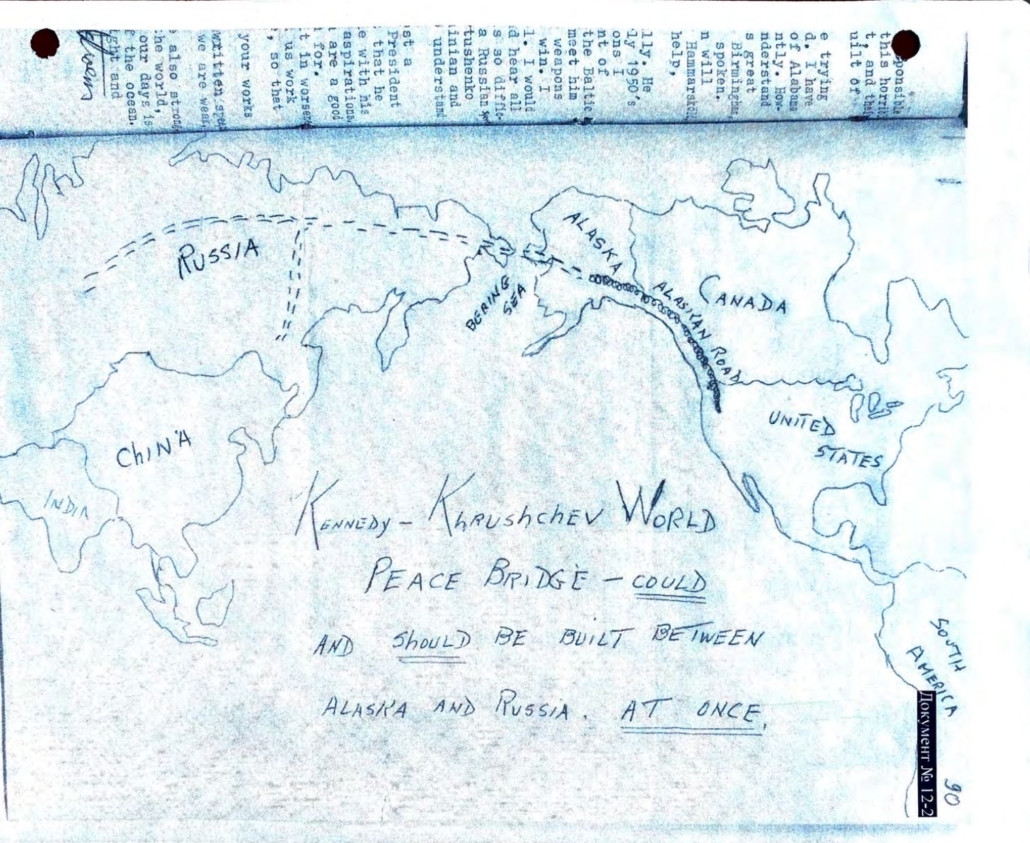 ponsible
this horri
t and tha
uilt of
e trying
d. I have
of Alabama
ntly. How-
nderstand
s great
Birmingham,
spoken.
n will
Hammarskj
help,
lly. He
ly 1950's.
ons I
nt of
the Baltic
meet him
weapons
win. I
l. I would
d hear all
s so diffic-
a Russian
tushenko
inian and
understand
st a
President
that he
e with his
aspirations
are a good
for.
t in worsen
us work
, so that
your works
written spea
we are weak
also strong
he world,
our days is
f the ocean.
ght and
RUSSIA
ALASKA
BERING
SEA
ALASKAN ROAD
CANADA
CHINA
INDIA
UNITED
STATES
KENNEDY - KHRUSHCHEV WORLD
PEACE BRIDGE - COULD
AND SHOULD BE BUILT BETWEEN
ALASKA AND RUSSIA. AT ONCE.
SOUTH
AMERICA
Документ № 12-2
90